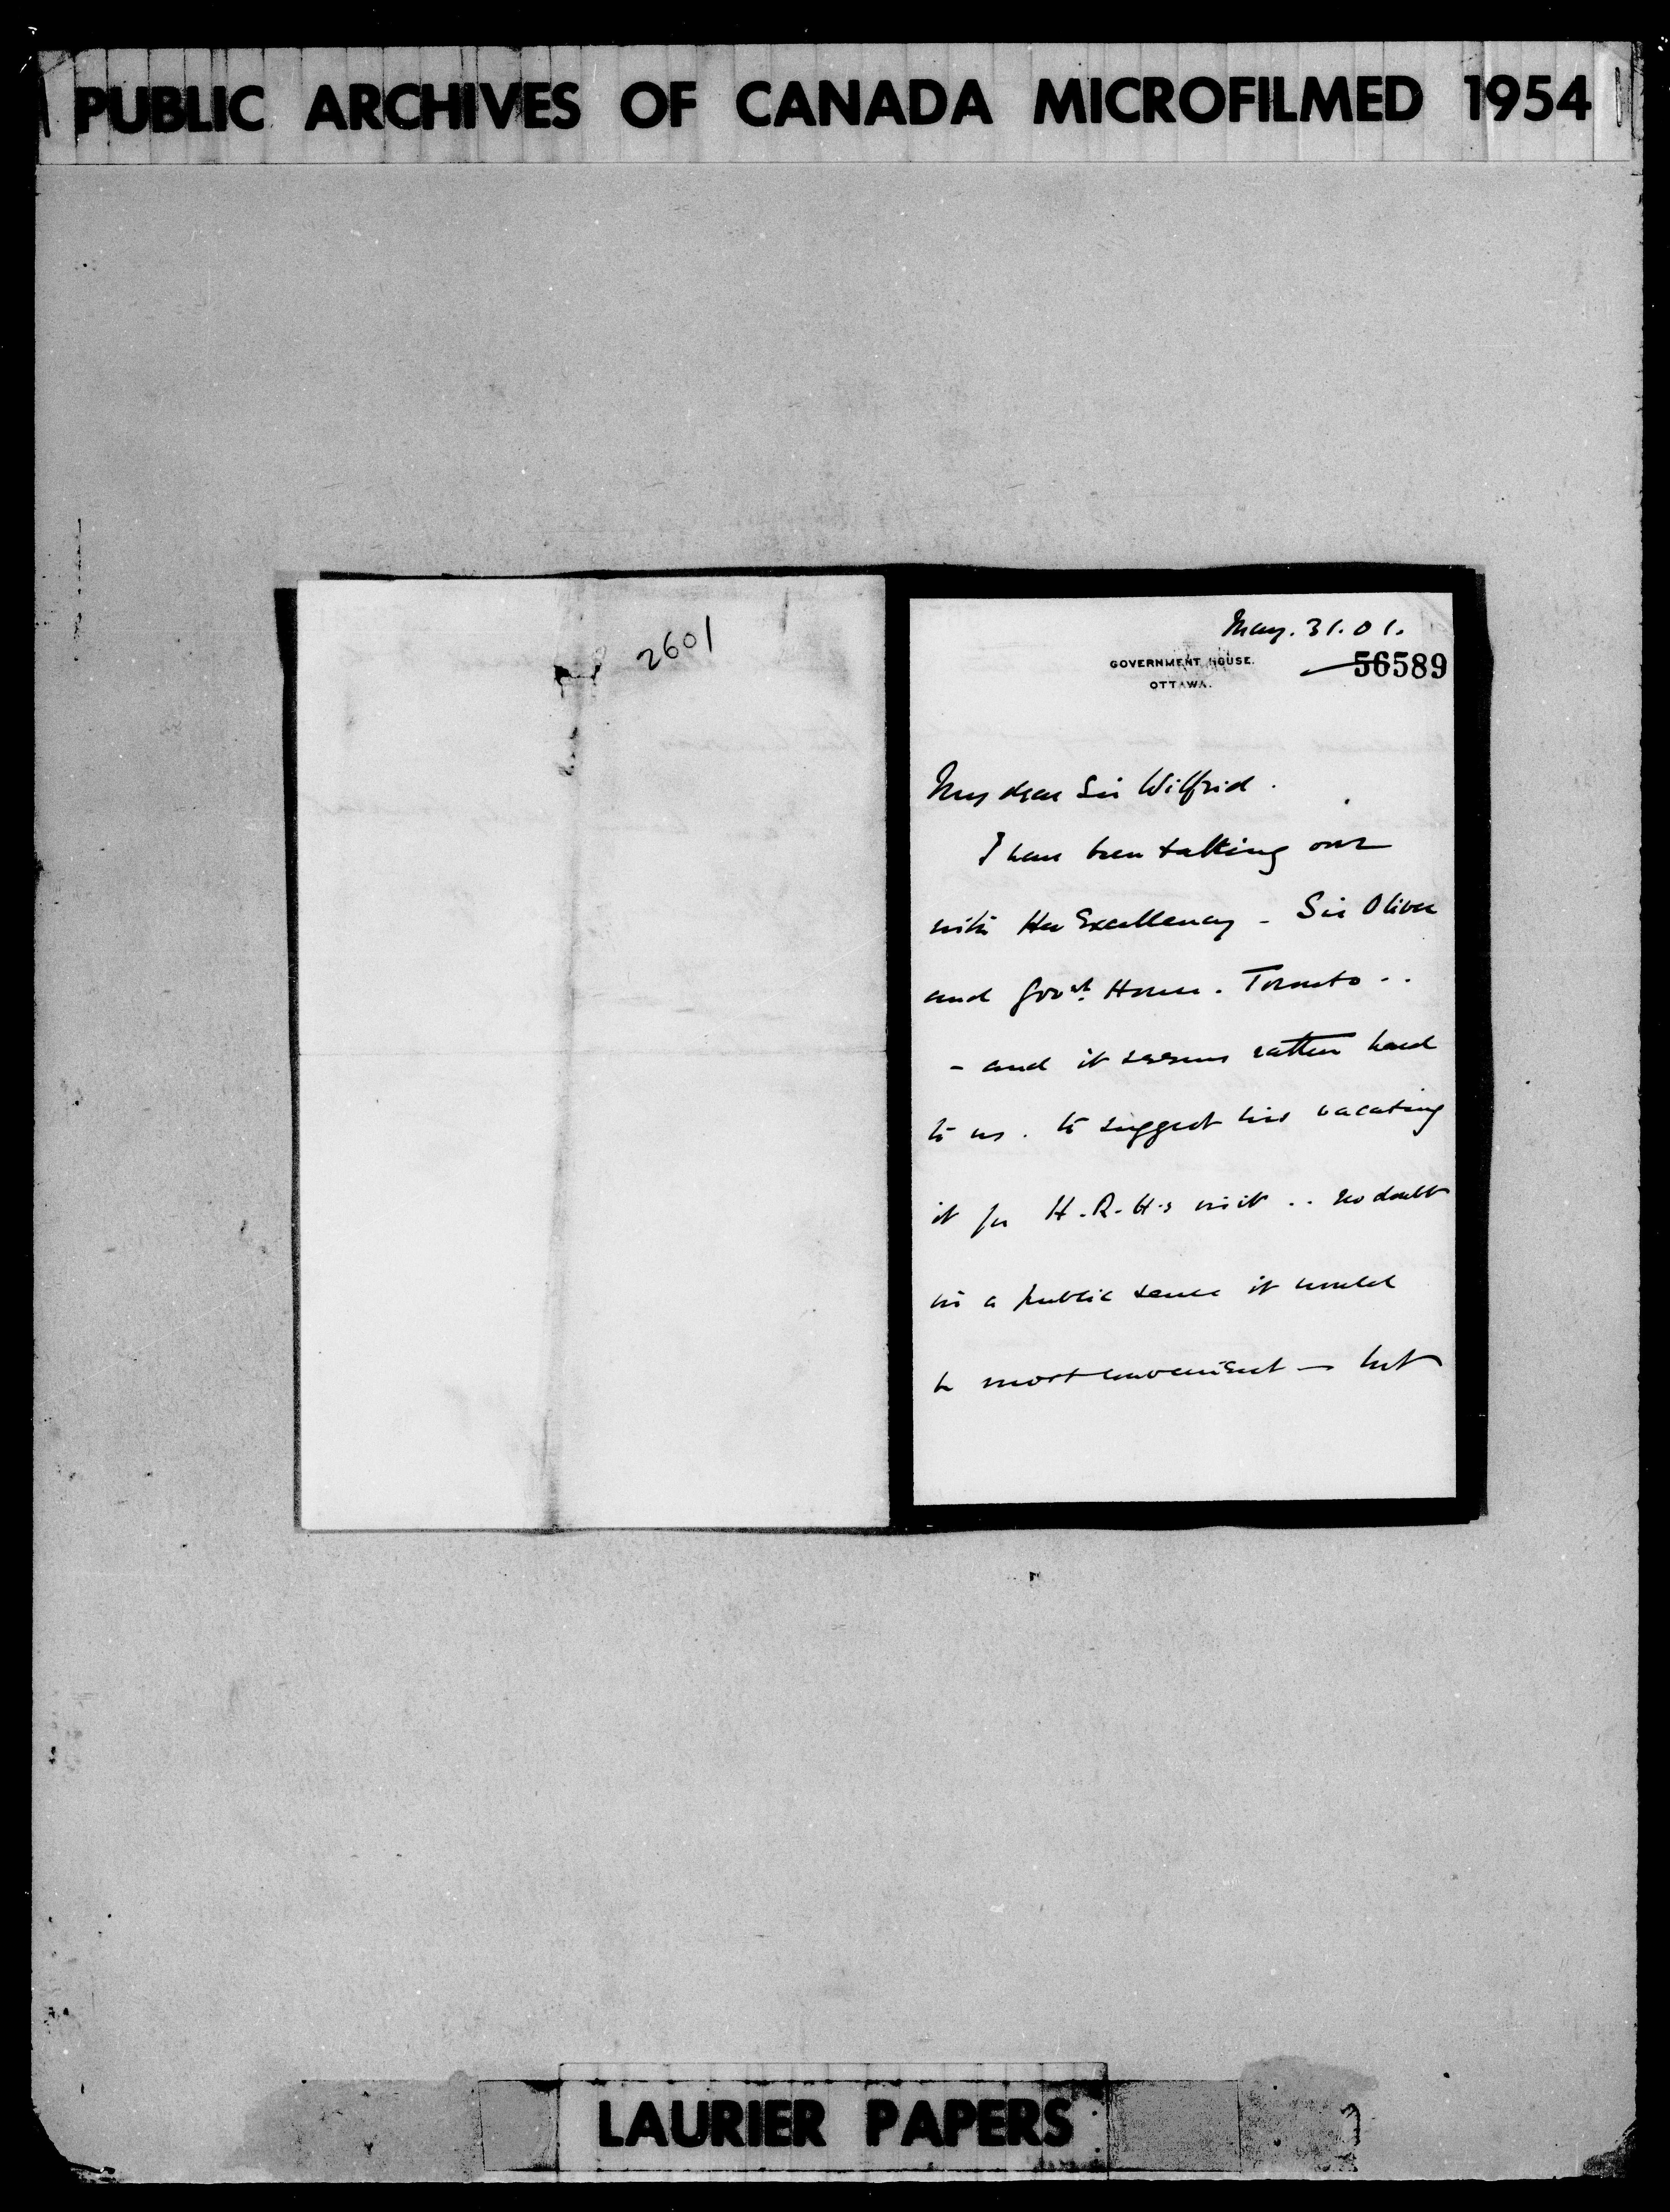 PUBLIC ARCHIVES OF CANADA MICROFILMED 1954
2601
May. 31. 01.
GOVERNMENT HOUSE.
OTTAWA.
56589
My dear Sir Wilfrid.
I have been talking over
with Her Excellency - Sir Oliver
and Govt. House. Toronto . .
- and it seems rather hard
to us. to suggest his vacating
it for H.R.H's visit . . no doubt
in a public sense it would
be most convenient - but
LAURIER PAPERS